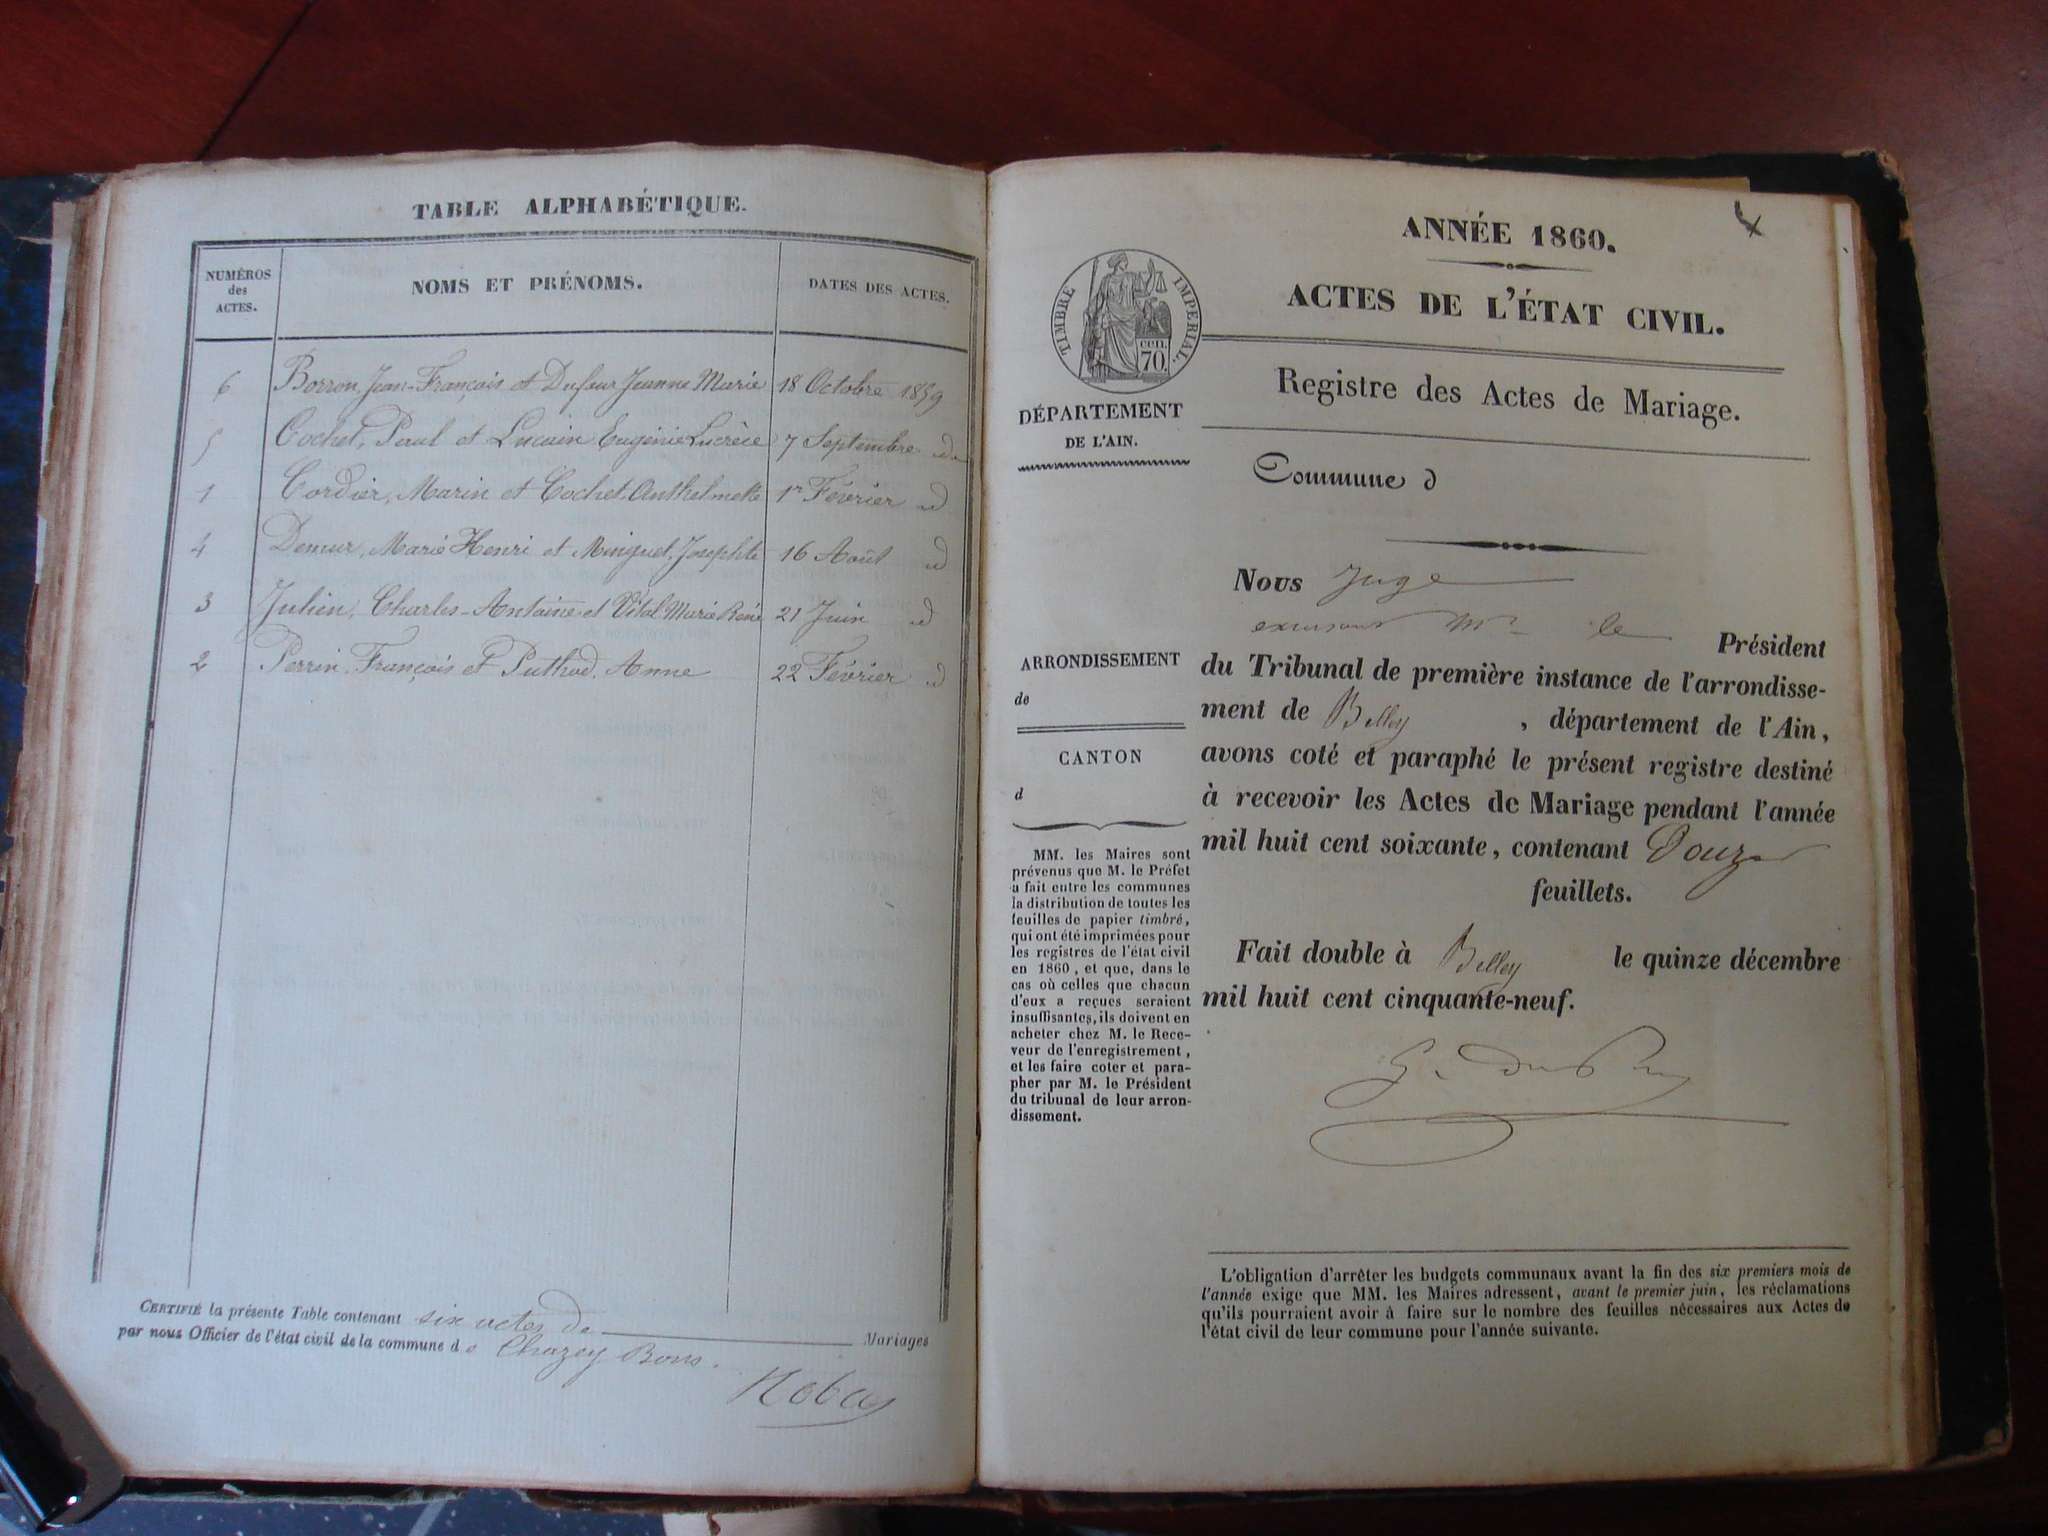 TABLE ALPHABÉTIQUE.
NUMÉROS des ACTES.
NOMS ET PRÉNOMS.
DATES DES ACTES.
6 Borron, Jean-François et Dufour Jeanne Marie 18 Octobre 1859
5 Cochet, Paul et Lucain Eugénie Lucrèce 7 Septembre id
1 Cordier, Marin et Cochet Anthelmette 1er Février id
4 Demur, Marie Henri et Minguet, Josephte 16 Août id
3 Julien, Charles-Antoine et Vital Marie René 21 Juin id
2 Perrin, François et Puthod, Anne 22 Février id
CERTIFIÉ la présente Table contenant six actes de Mariages
par nous Officier de l'état civil de la commune de Chazey Bons.
ANNÉE 1860.
ACTES DE L'ÉTAT CIVIL.
TIMBRE IMPÉRIAL.
cen. 70.
Registre des Actes de Mariage.
DÉPARTEMENT
DE L'AIN.
Commune d
ARRONDISSEMENT
de
CANTON
d
MM. les Maires sont
prévenus que M. le Préfet
a fait entre les communes
la distribution de toutes les
feuilles de papier timbré,
qui ont été imprimées pour
les registres de l'état civil
en 1860, et que, dans le
cas où celles que chacun
d'eux a reçues seraient
insuffisantes, ils doivent en
acheter chez M. le Rece-
veur de l'enregistrement,
et les faire coter et para-
pher par M. le Président
du tribunal de leur arron-
dissement.
Nous Juge
excusant Mr le Président
du Tribunal de première instance de l'arrondisse-
ment de Belley, département de l'Ain,
avons coté et paraphé le présent registre destiné
à recevoir les Actes de Mariage pendant l'année
mil huit cent soixante, contenant Douze
feuillets.
Fait double à Belley le quinze décembre
mil huit cent cinquante-neuf.
L'obligation d'arrêter les budgets communaux avant la fin des six premiers mois de
l'année exige que MM. les Maires adressent, avant le premier juin, les réclamations
qu'ils pourraient avoir à faire sur le nombre des feuilles nécessaires aux Actes de
l'état civil de leur commune pour l'année suivante.